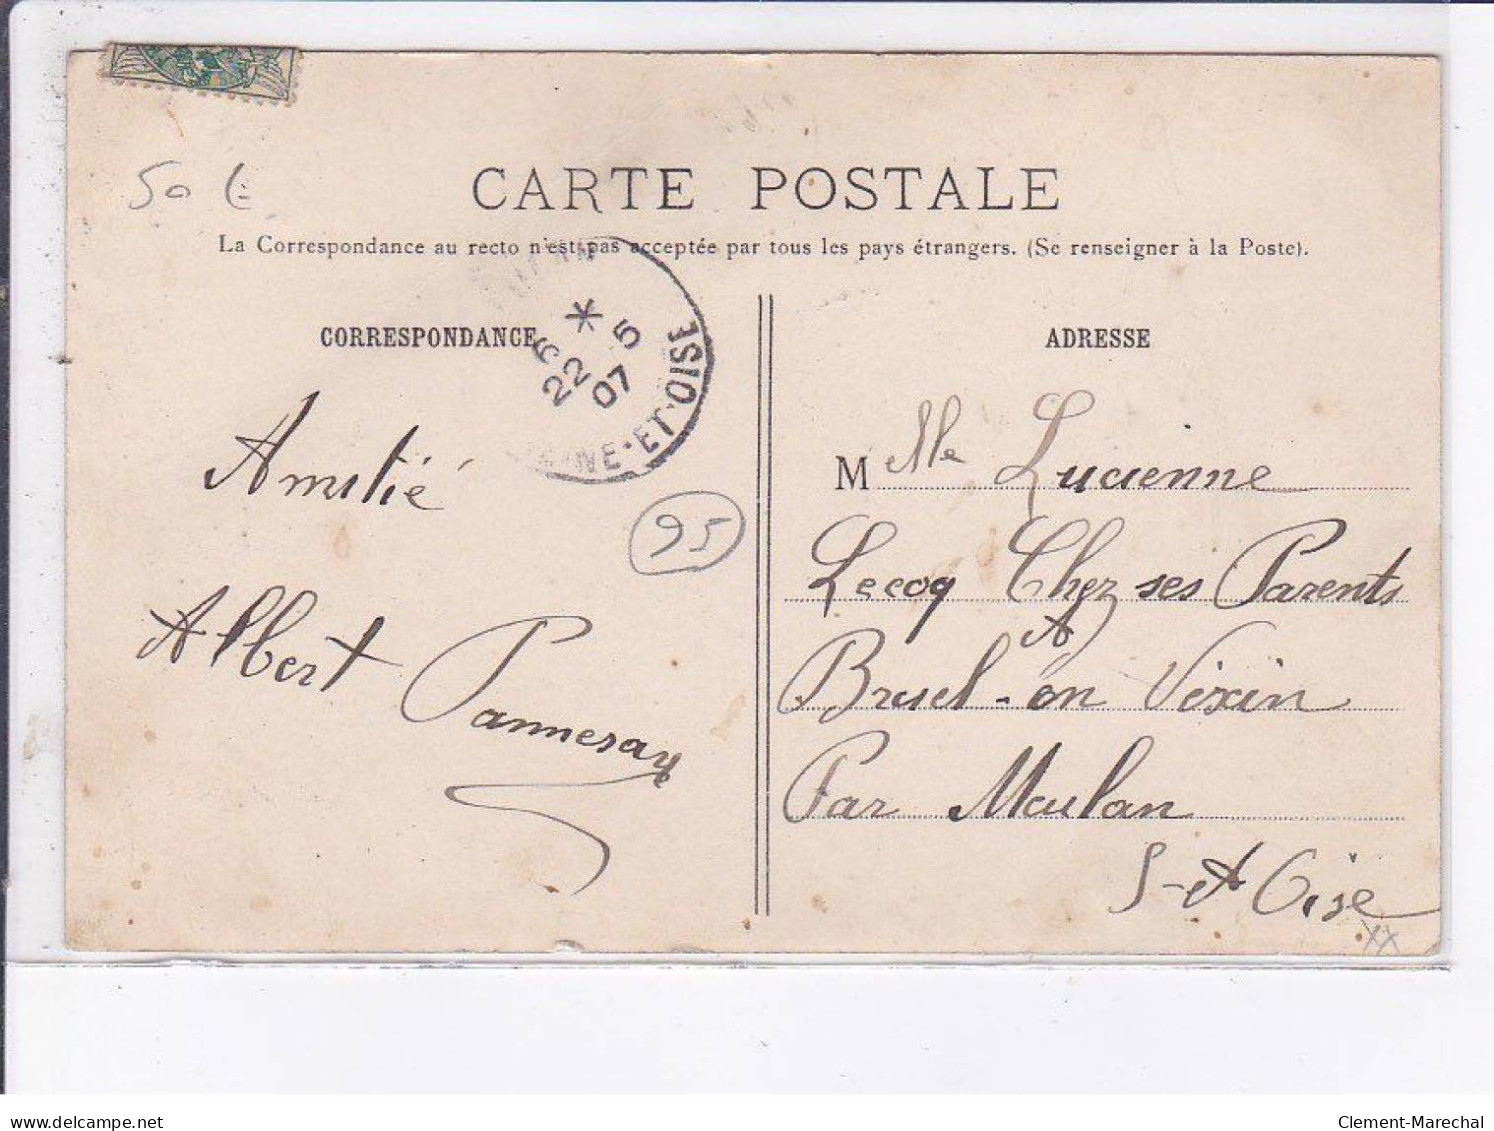 50 €
CARTE POSTALE
La Correspondance au recto n'est pas acceptée par tous les pays étrangers. (Se renseigner à la Poste).
CORRESPONDANCE
6 * 5
22
07
SEINE-ET-OISE
Amitié
95
Albert Panneraye
ADRESSE
M elle Lucienne
Lecoq Chez ses Parents
A
Bruel-en Vexin
Par Meulan
S-et Oise
XX
delcampe.net
Clement-Marechal